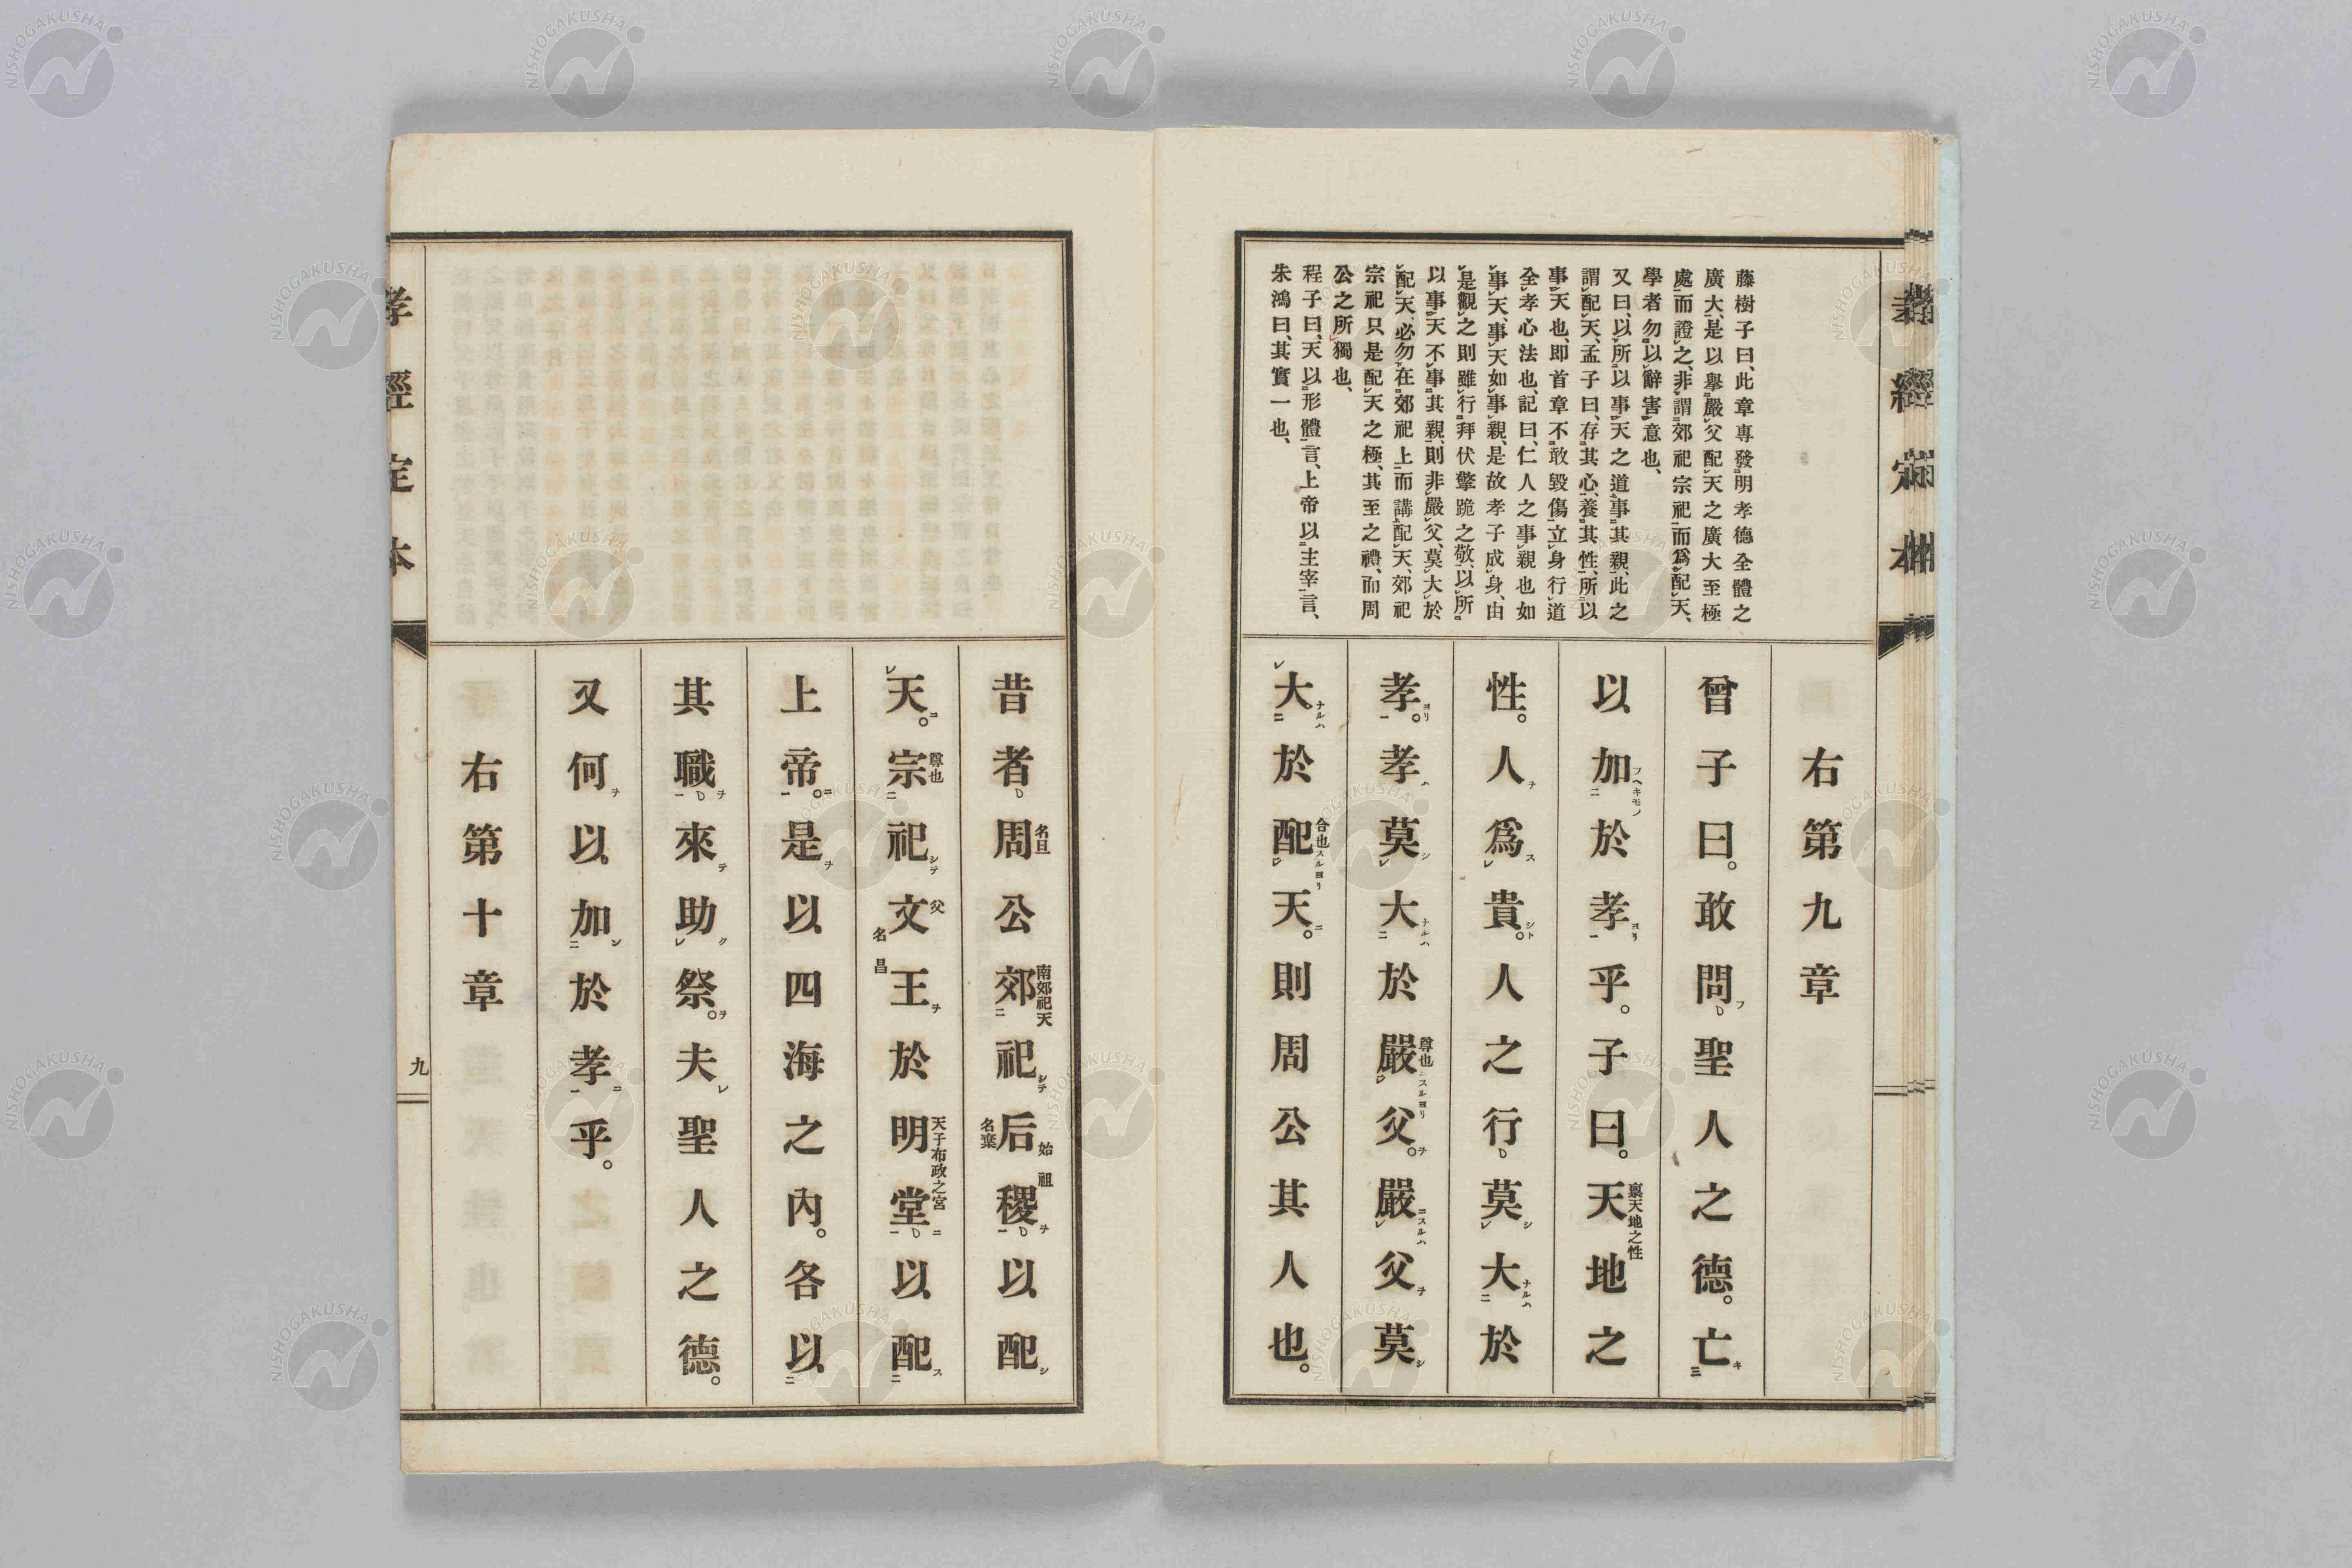 藤樹子曰、此章專發明孝德全體之
廣大、是以舉嚴父配天之廣大至極
處而證之、非謂郊祀宗祀而爲配天、
學者勿以辭害意也、
又曰、以所以事天之道事其親、此之
謂配天、孟子曰、存其心、養其性、所以
事天也、即首章不敢毀傷、立身行道
全孝心法也、記曰、仁人之事親也如
事天、事天如事親、是故孝子成身、由
是觀之則雖行拜伏擎跪之敬、以所
以事天不事其親、則非嚴父、莫大於
配天、必勿在郊祀上而講配天、郊祀
宗祀只是配天之極、其至之禮、而周
公之所獨也、
程子曰、天以形體言、上帝以主宰言、
朱鴻曰、其實一也、
右第九章
曾子曰。敢問聖人之德。亡
以加於孝乎。子曰。天地之
稟天地之性
性。人爲貴。人之行莫大於
孝。孝莫大於嚴父。嚴父莫
尊也
大於配天。則周公其人也。
合也
昔者周公郊祀后稷以配
名旦
南郊祀天
始祖
名棄
天。宗祀文王於明堂以配
尊也
父
名昌
天子布政之宮
上帝。是以四海之內。各以
其職來助祭。夫聖人之德。
又何以加於孝乎。
右第十章
孝經定本
九
NISHOGAKUSHA